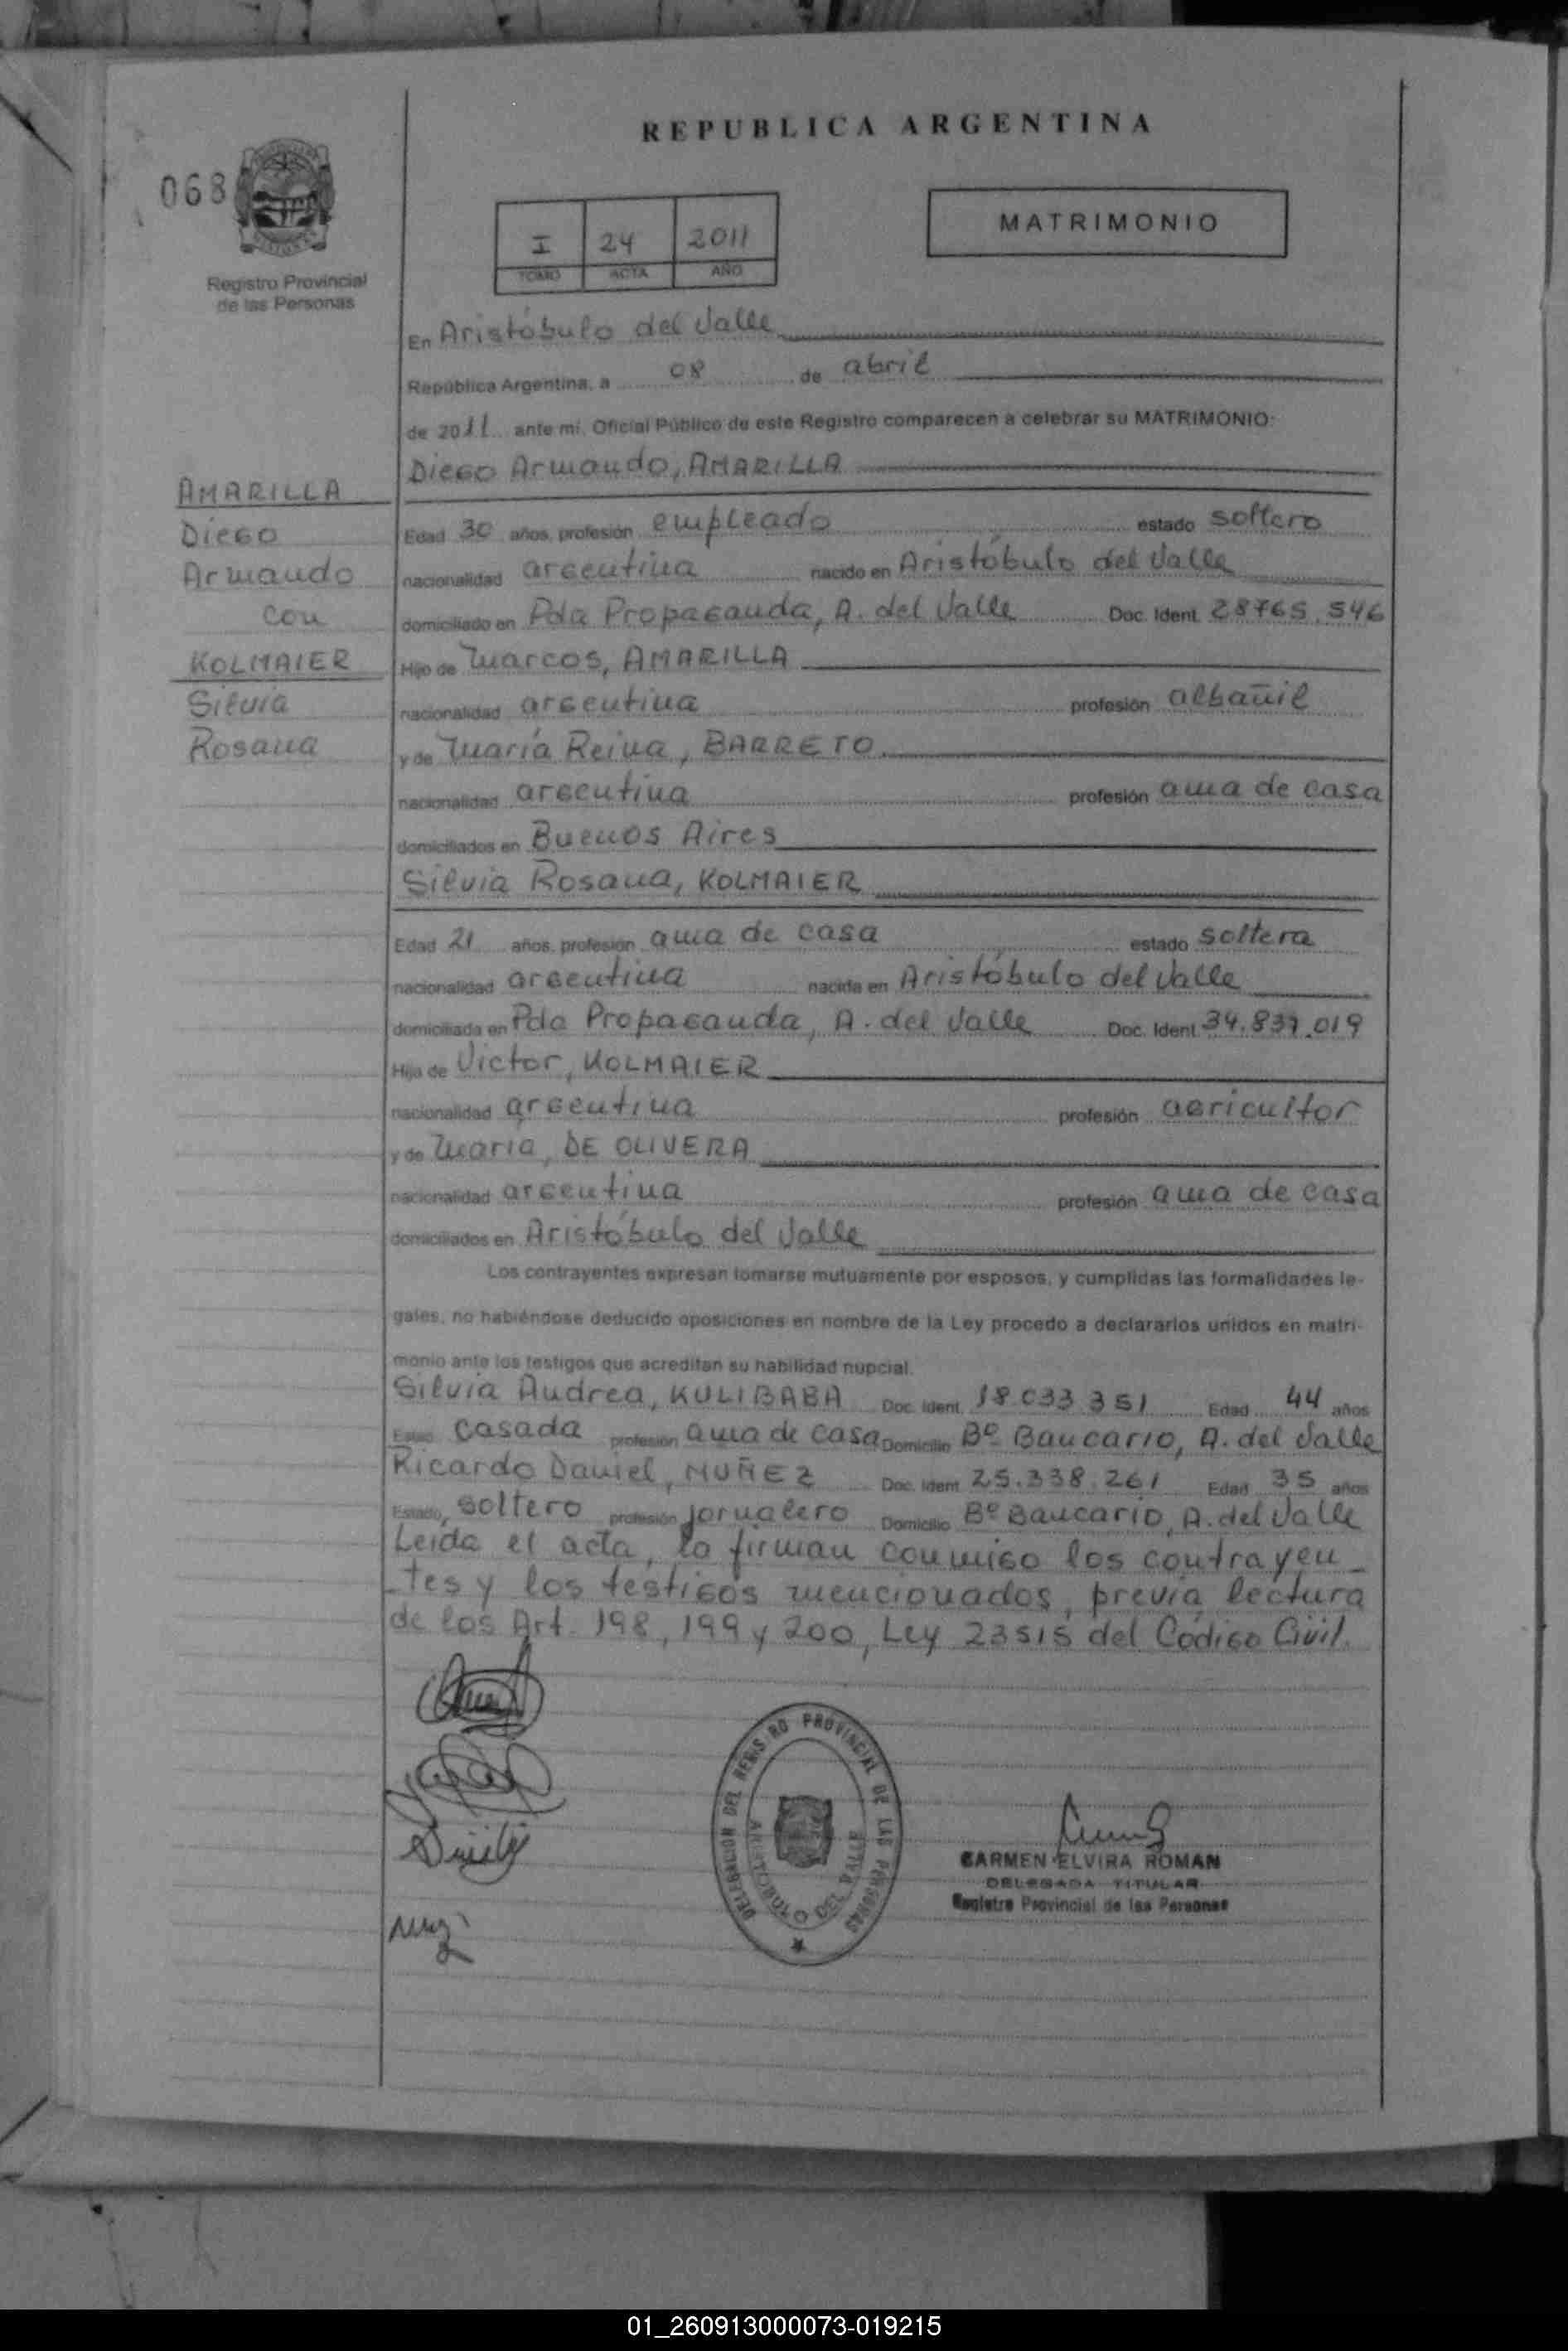 REPUBLICA ARGENTINA
068
I 24 2011
TOMO ACTA AÑO
MATRIMONIO
Registro Provincial
de las Personas
En Aristóbulo del Valle
República Argentina, a 08 de abril
de 2011 ante mí, Oficial Público de este Registro comparecen a celebrar su MATRIMONIO:
Diego Armando, AMARILLA
AMARILLA
Diego
Armando
con
KOLMAIER
Silvia
Rosana
Edad 30 años, profesión empleado estado soltero
nacionalidad argentina nacido en Aristóbulo del Valle
domiciliado en Pda Propaganda, A. del Valle Doc. Ident. 28765.546
Hijo de Marcos, AMARILLA
nacionalidad argentina profesión albañil
y de María Reina, BARRETO
nacionalidad argentina profesión ama de casa
domiciliados en Buenos Aires
Silvia Rosana, KOLMAIER
Edad 21 años, profesión ama de casa estado soltera
nacionalidad argentina nacida en Aristóbulo del Valle
domiciliada en Pda Propaganda, A. del Valle Doc. Ident. 34.837.019
Hija de Victor, KOLMAIER
nacionalidad argentina profesión agricultor
y de María, DE OLIVERA
nacionalidad argentina profesión ama de casa
domiciliados en Aristóbulo del Valle
Los contrayentes expresan tomarse mutuamente por esposos, y cumplidas las formalidades le-
gales, no habiéndose deducido oposiciones en nombre de la Ley procedo a declararlos unidos en matri-
monio ante los testigos que acreditan su habilidad nupcial.
Silvia Andrea, KULIBABA Doc. Ident. 18.033.351 Edad 44 años
Estado casada profesión ama de casa Domicilio Bº Bancario, A. del Valle
Ricardo Daniel, MUÑEZ Doc. Ident. 25.338.261 Edad 35 años
Estado, soltero profesión jornalero Domicilio Bº Bancario, A. del Valle
Leída el acta, la firman conmigo los contrayen-
tes y los testigos mencionados, previa lectura
de los Art. 198, 199 y 200, Ley 23515 del Código Civil.
DELEGACION DEL REGISTRO PROVINCIAL DE LAS PERSONAS
ARISTOBULO DEL VALLE
CARMEN ELVIRA ROMAN
DELEGADA TITULAR
Registro Provincial de las Personas
01_260913000073-019215